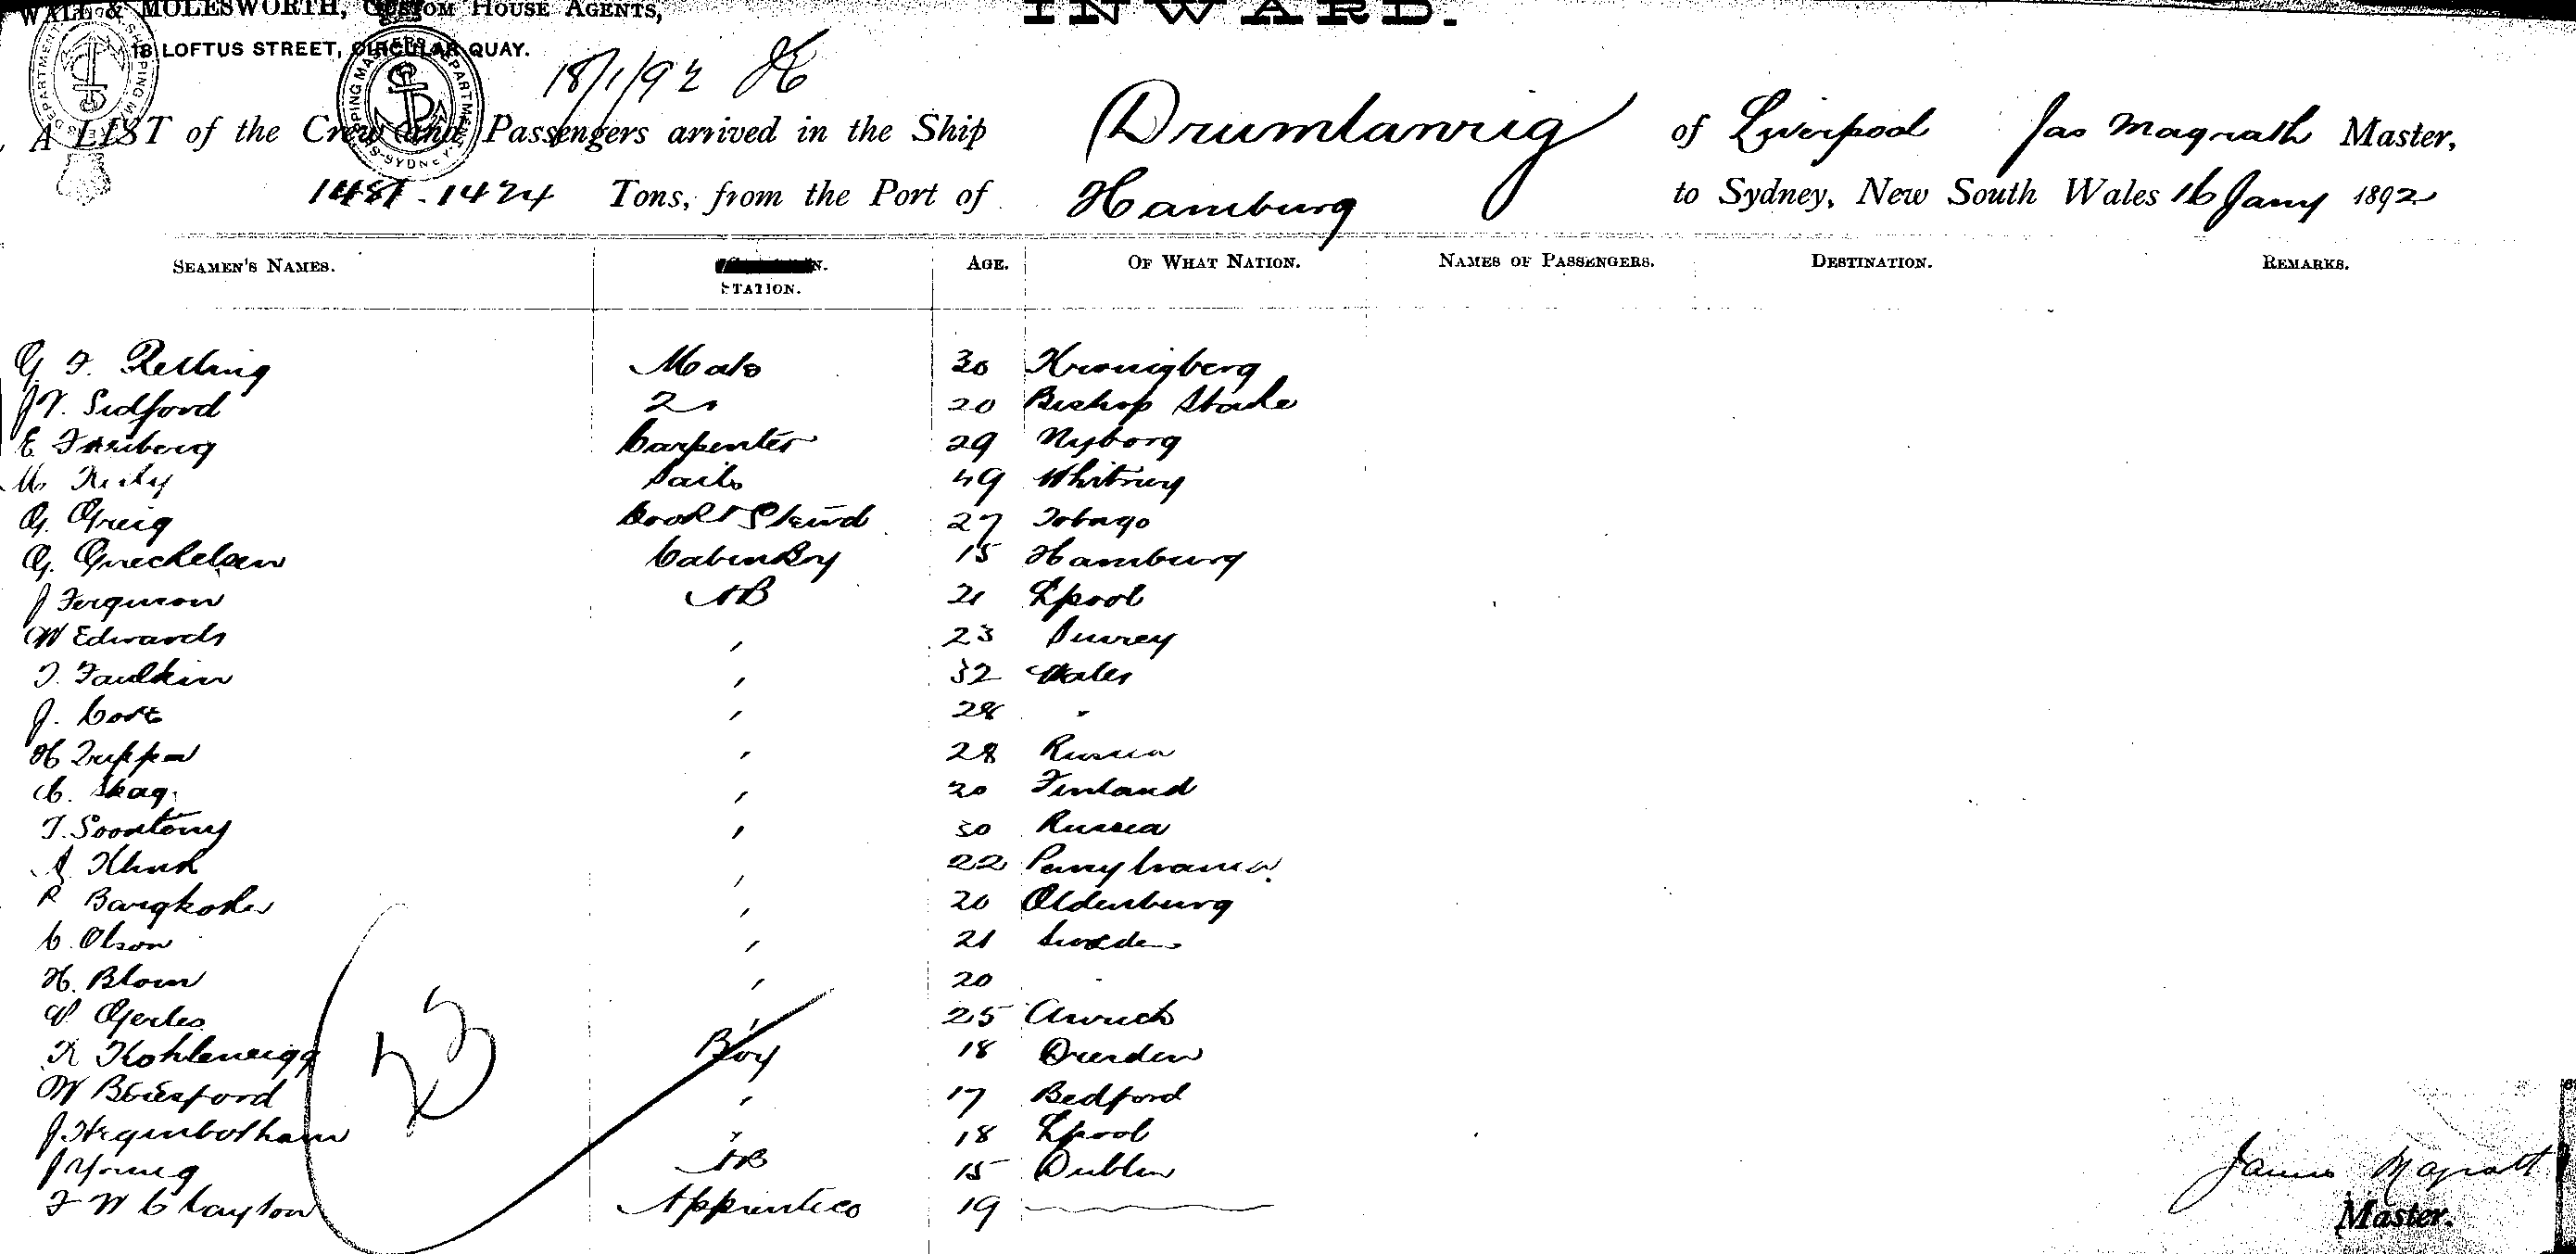 WALL & MOLESWORTH, CUSTOM HOUSE AGENTS,
INWARD.
18 LOFTUS STREET, CIRCULAR QUAY.
18/1/92
A LIST of the Crew and Passengers arrived in the Ship Drumlanrig of Liverpool Jas Magrath Master,
1481-1424 Tons, from the Port of Hamburg to Sydney, New South Wales 16 Jany 1892
SEAMEN'S NAMES. STATION. AGE. OF WHAT NATION. NAMES OF PASSENGERS. DESTINATION. REMARKS.
G F. Relling Mate 30 Kronigberg
J V. Sidford 2 20 Bishop Stade
E Friberg Carpenter 29 Nyborg
Sails 49 Whitney
G. Greig Cook & Stewd 27 Tobago
G. Guechelsen Cabin Boy 15 Hamburg
J Ferguson AB 21 Lpool
W Edwards " 23 Surrey
T. Faulkin " 32 Wales
J. Cort " 28 "
H Zuppa " 28 Russia
C. Skag " 20 Finland
T. Soontony " 30 Russia
A Klink " 22 Pensylvania
R Bangkohe " 20 Oldenburg
C. Olson " 21 Sweden
H. Blom " 20 "
Gerles " 25 Aurich
K Kohleneigg Boy 18 Dresden
W Beresford " 17 Bedford
J. Heginbotham " 18 Lpool
J Young AB 15 Dublin
F W Clayton Apprentice 19
23
James Magrath
Master.